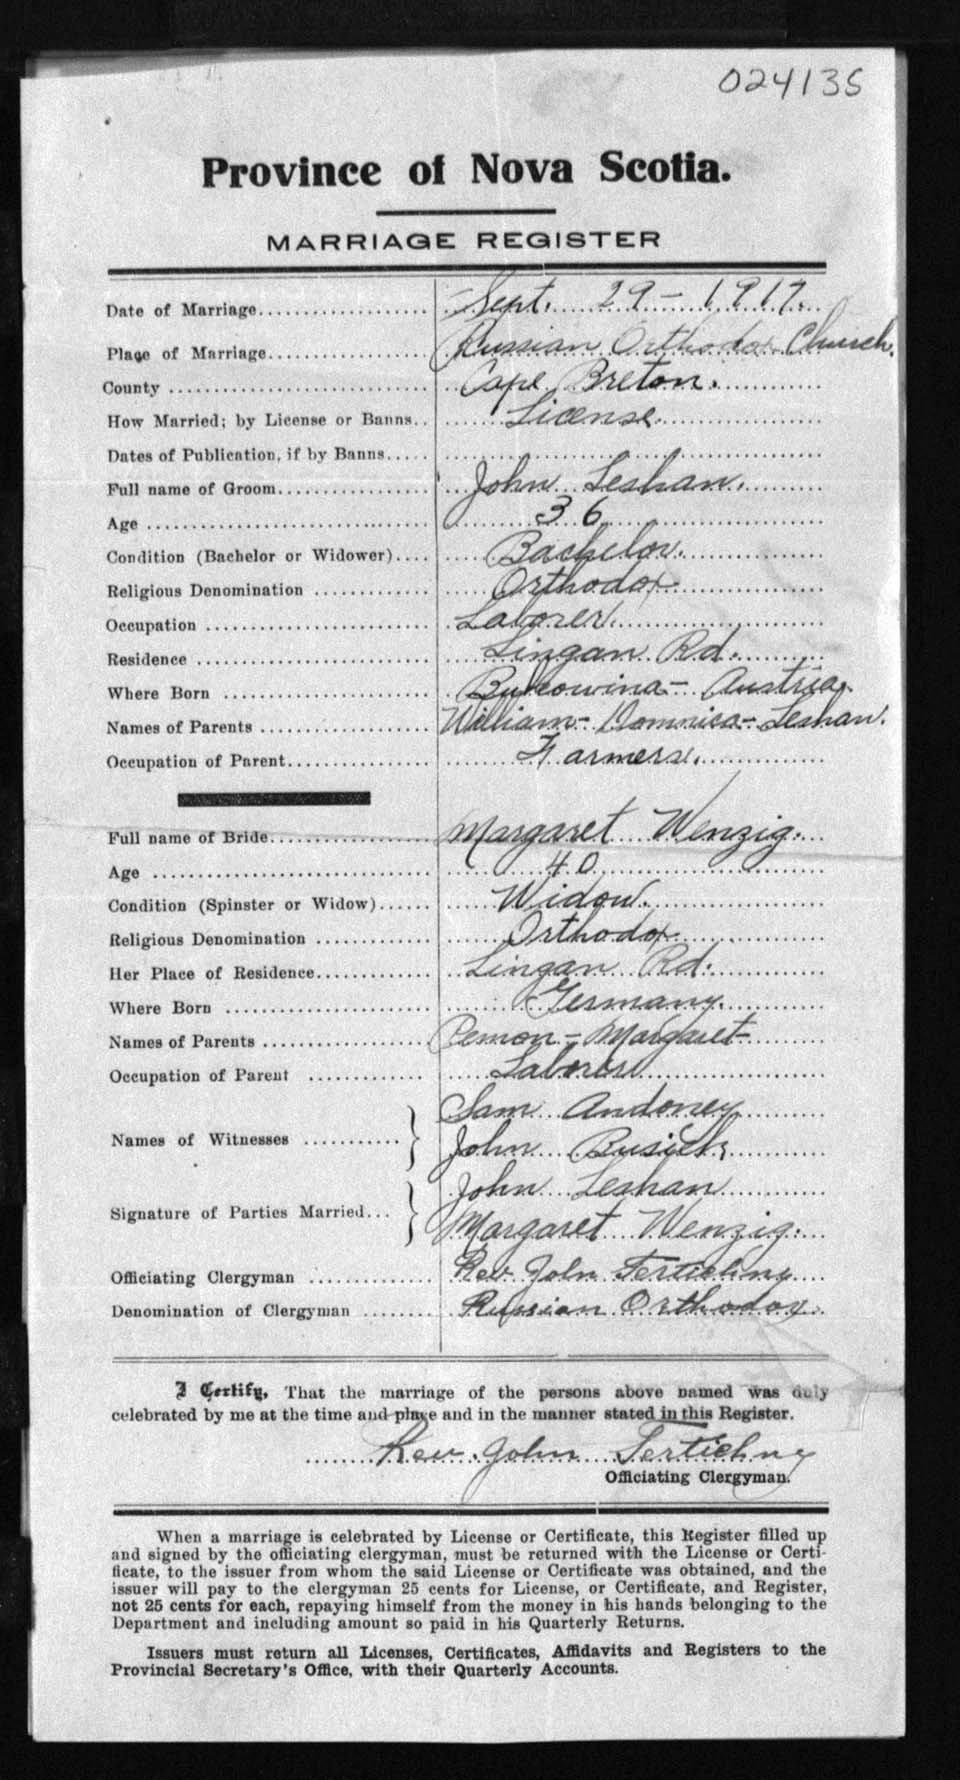 024135
Province of Nova Scotia.
MARRIAGE REGISTER
Date of Marriage Sept. 29 - 1917.
Place of Marriage Russian Orthodox Church.
County Cape Breton.
How Married; by License or Banns License.
Dates of Publication, if by Banns
Full name of Groom John Leshan.
Age 36
Condition (Bachelor or Widower) Bachelor.
Religious Denomination Orthodox
Occupation Laborer.
Residence Lingan Rd.
Where Born Bukowina - Austria.
Names of Parents William - Domnica - Leshan.
Occupation of Parent Farmers.
Full name of Bride Margaret Wenzig.
Age 40
Condition (Spinster or Widow) Widow.
Religious Denomination Orthodox
Her Place of Residence Lingan Rd.
Where Born Germany.
Names of Parents - Margaret
Occupation of Parent
Names of Witnesses Sam Andoney
John
Signature of Parties Married John Leshan
Margaret Wenzig.
Officiating Clergyman Rev John Tertichny
Denomination of Clergyman Russian Orthodox.
I Certify, That the marriage of the persons above named was duly
celebrated by me at the time and place and in the manner stated in this Register.
Rev. John Tertichny
Officiating Clergyman.
When a marriage is celebrated by License or Certificate, this Register filled up
and signed by the officiating clergyman, must be returned with the License or Certi-
ficate, to the issuer from whom the said License or Certificate was obtained, and the
issuer will pay to the clergyman 25 cents for License, or Certificate, and Register,
not 25 cents for each, repaying himself from the money in his hands belonging to the
Department and including amount so paid in his Quarterly Returns.
Issuers must return all Licenses, Certificates, Affidavits and Registers to the
Provincial Secretary's Office, with their Quarterly Accounts.